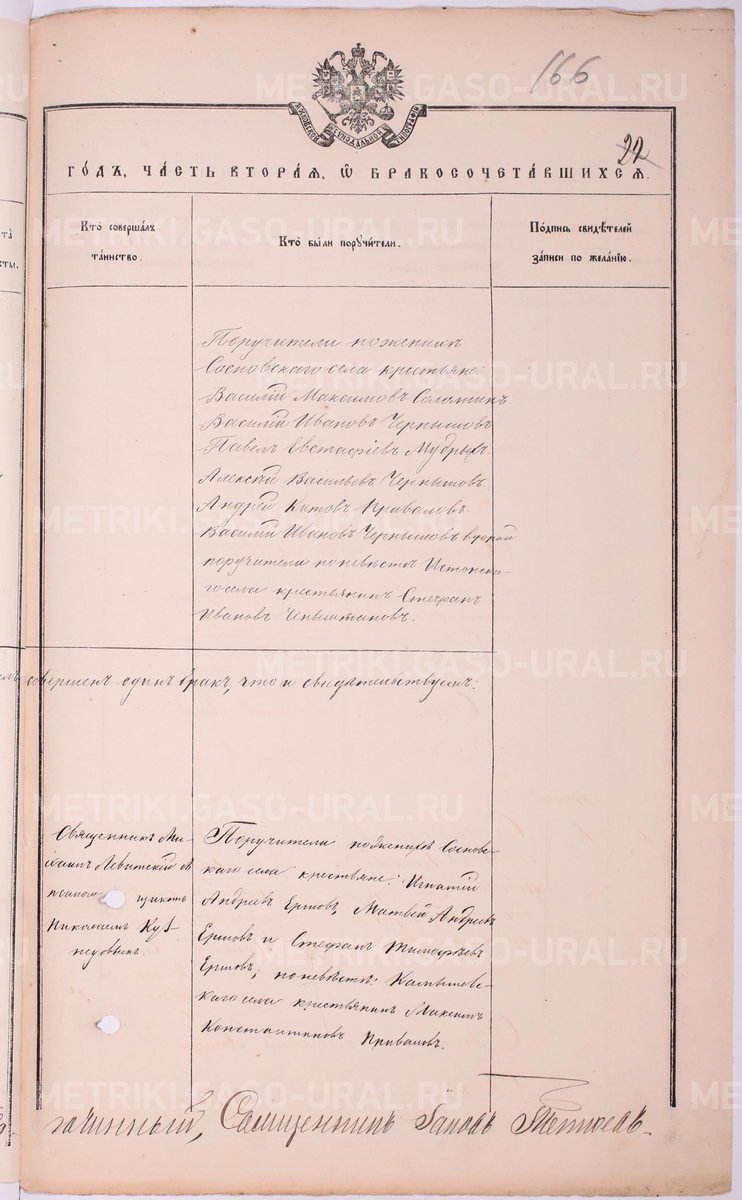 166
ЛУКОВСКОЙ СѴНОДАЛЬНОЙ ТИПОГРАФІИ
22
ГОДЪ, ЧАСТЬ ВТОРАЯ, Ѡ БРАКОСОЧЕТАВШИХСЯ.
та
сты.
Кто совершалъ
таинство.
Кто были поручители.
Подпись свидѣтелей
записи по желанію.
Поручители по женихѣ
Сосновскаго села крестьяне:
Василій Максимовъ
Василій Ивановъ Чернышовъ
Павелъ Евстафіевъ Мудрыхъ.
Алексѣй Васильевъ Чернышовъ
Андрей Китовъ Приваловъ.
Василій Ивановъ Чернышовъ второй
поручители по невѣстѣ Истокска-
го села крестьянинъ Стефанъ
Ивановъ
совершенъ одинъ бракъ, что и свидѣтельствуемъ:
Священникъ Ми-
хаилъ Левитскій
псаломщикомъ
Николаемъ
Поручители по женихѣ Сосновс-
каго села крестьяне: Игнатій
Андреевъ Ершовъ, Матвей Андреевъ
Ершовъ и Стефанъ Тимофѣевъ
Ершовъ, по невѣстѣ: Камышевс-
каго села крестьянинъ Максимъ
Константиновъ Приваловъ.
Священникъ Іаковъ
METRIKI.GASO-URAL.RU